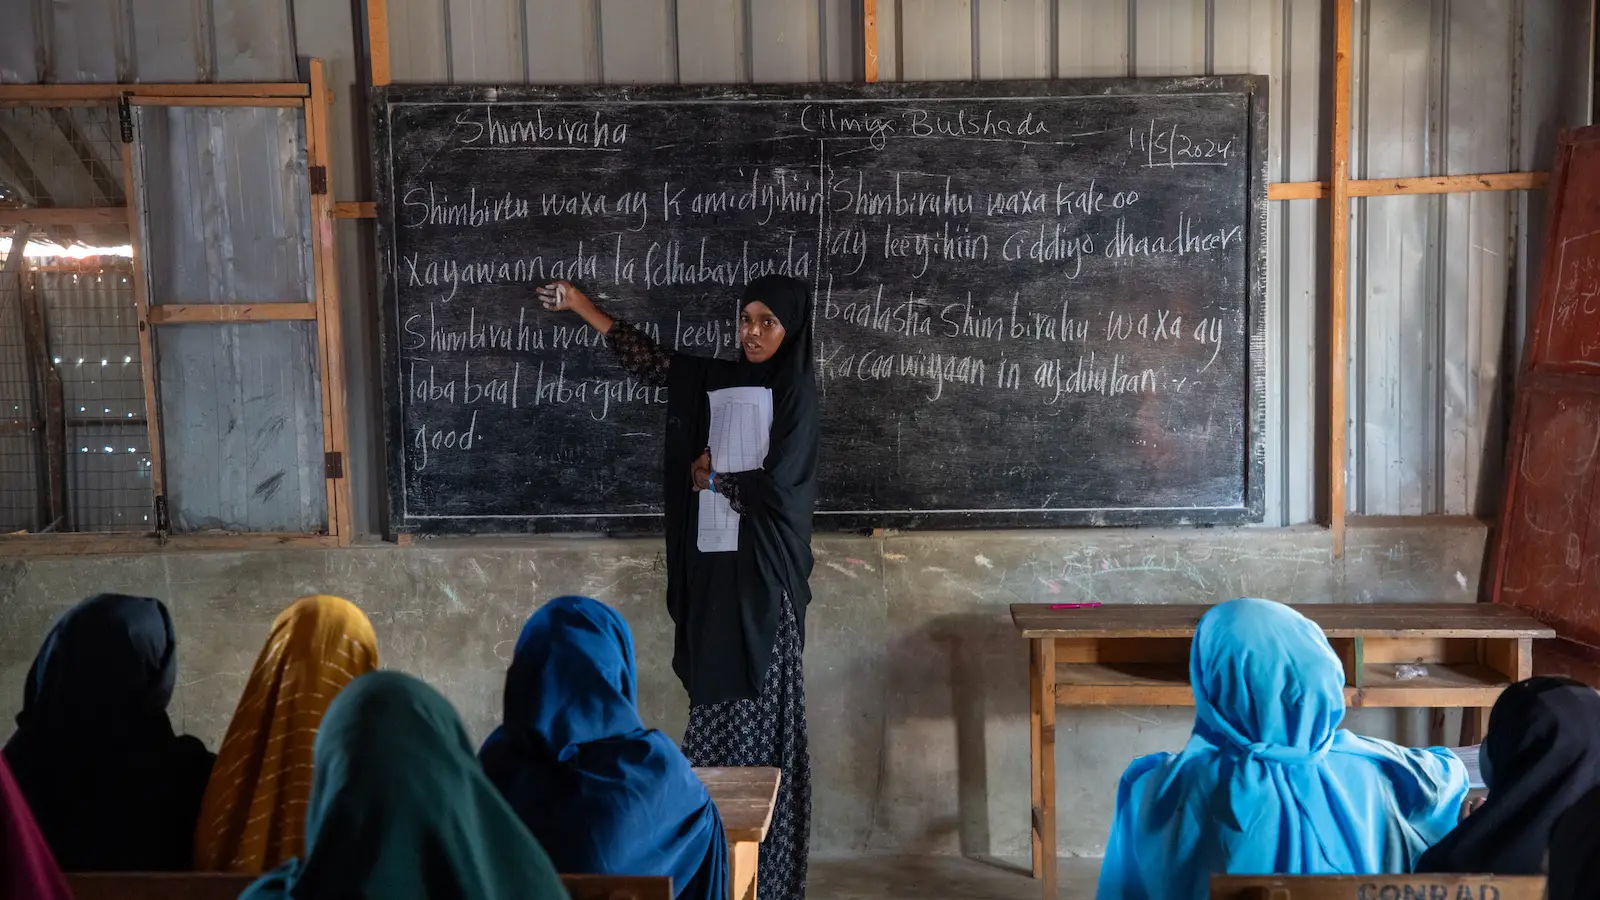 Shimbiraha
Cilmiga Bulshada
11/5/2024
Shimbirtu waxa ay kamidyihiin
xayawannada lafdhabarleyda
Shimbiruhu waxa ay leeyi
laba baal laba garab
good.
Shimbiruhu waxa kaleoo
ay leeyihiin Ciddiyo dhaadheer
baalasha Shimbiruhu waxa ay
Ka caawiyaan in ay duulaan
CONRAD